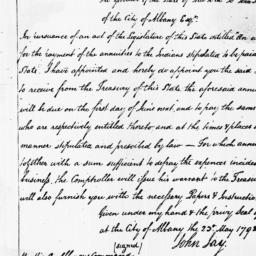 of the City of Albany Esqr.
In pursuance of an act of the Legislature of this State entitled An
for the payment of the annuities to the Indians stipulated to be paid
State. I have appointed and hereby do appoint you the said
to receive from the Treasury of this State the aforesaid ann
will be due on the first day of June next, and to pay the same
who are respectively entitled thereto and at the times & places
manner stipulated and prescribed by law — For which amou
together with a sum sufficient to defray the expences inciden
business, the Comptroller will issue his warrant to the Treasu
will also furnish you with the necessary Papers & Instruction
Given under my hand & the privy Seal
at the City of Albany the 23d May 179
(signed)
John Jay.